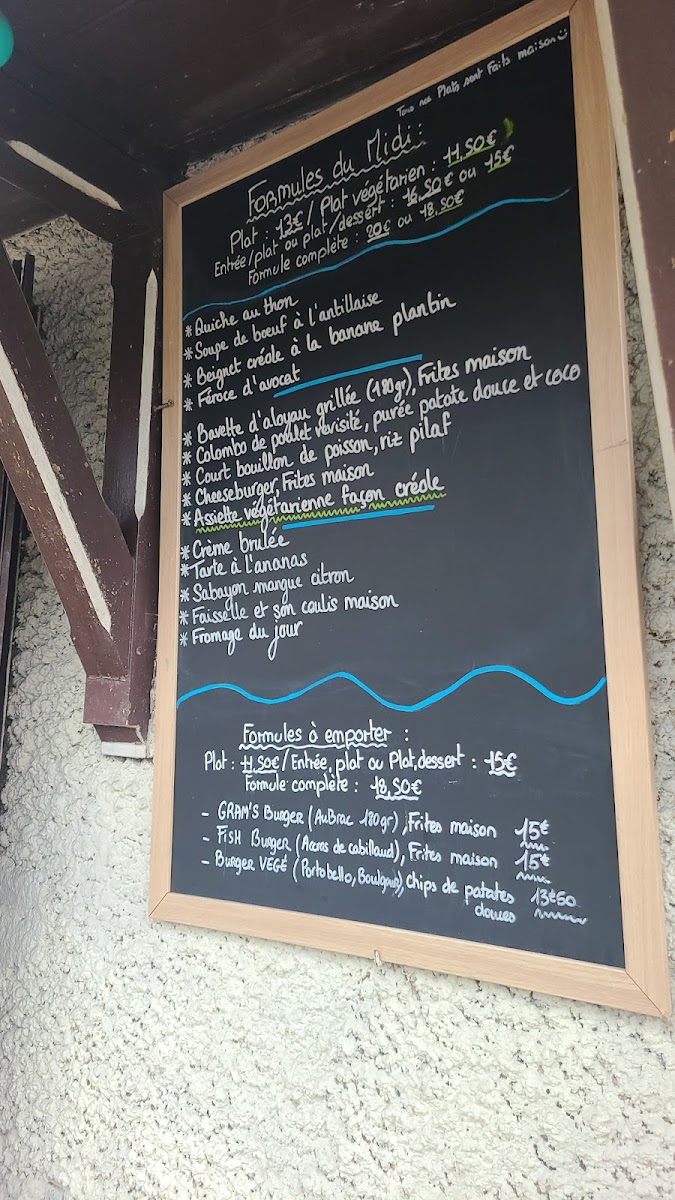 Tous nos Plats sont Faits maison
Formules du Midi :
Plat : 13€ / Plat végétarien : 11,50€
Entrée/plat ou plat/dessert : 16,50€ ou 15€
Formule complète : 20€ ou 18,50€
* Quiche au thon
* Soupe de boeuf à l'antillaise
* Beignet créole à la banane plantin
* Féroce d'avocat
* Bavette d'aloyau grillée (180gr), Frites maison
* Colombo de poulet revisité, purée patate douce et coco
* Court bouillon de poisson, riz pilaf
* Cheeseburger, Frites maison
* Assiette végétarienne façon créole
* Crème brulée
* Tarte à l'ananas
* Sabayon mangue citron
* Faisselle et son coulis maison
* Fromage du jour
Formules à emporter :
Plat : 11,50€ / Entrée, plat ou Plat, dessert : 15€
Formule complète : 18,50€
- GRAM'S Burger (AuBrac 180gr), Frites maison 15€
- FISH Burger (Accras de cabillaud), Frites maison 15€
- Burger VEGÉ (Portobello, Boulgour), Chips de patates 13€50
douces